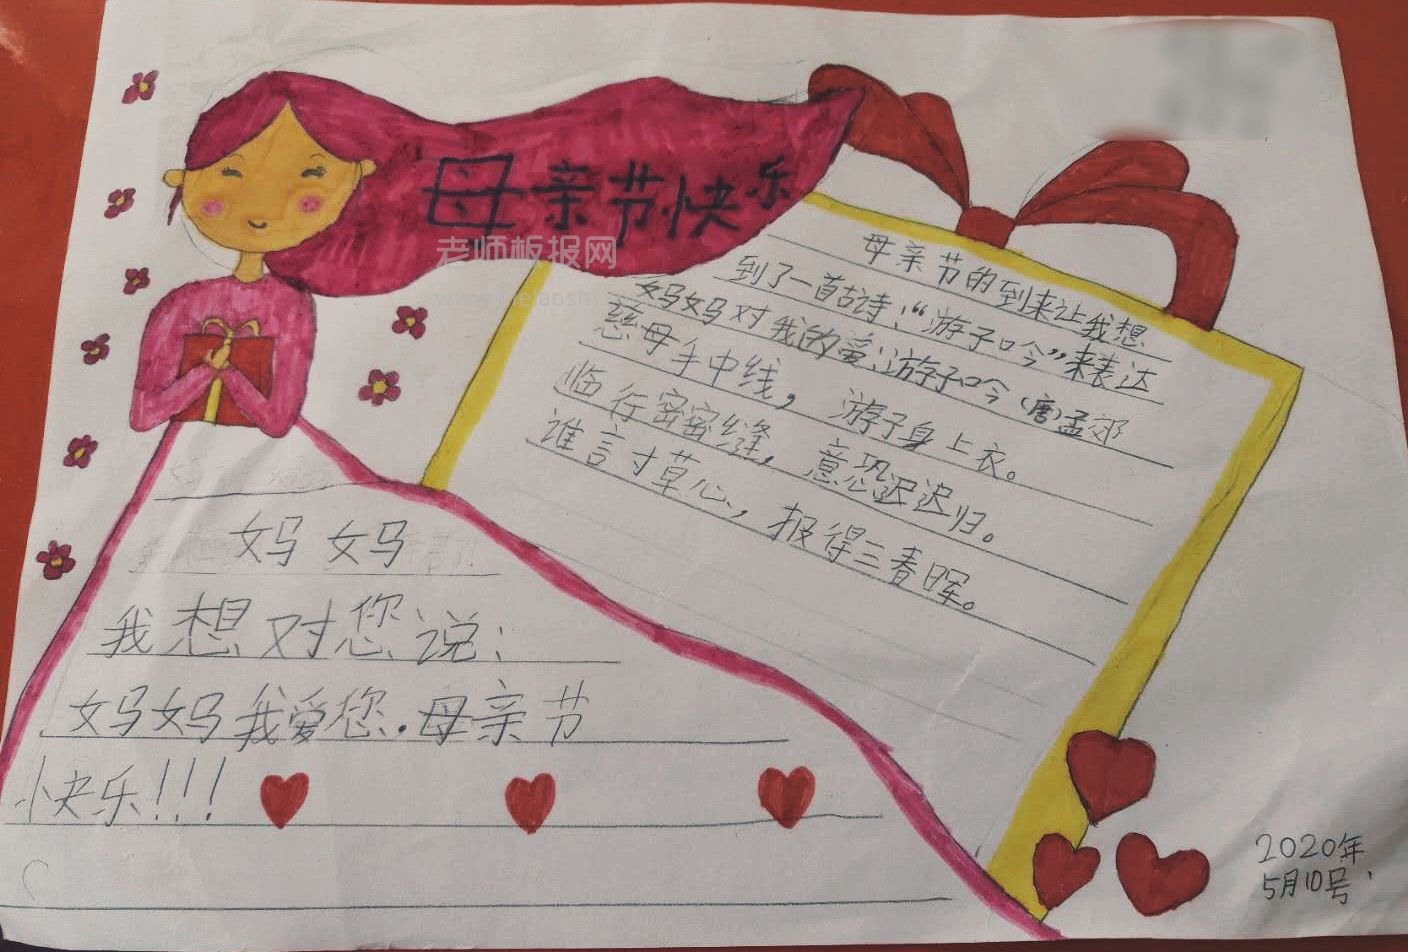 母亲节快乐
老师板报网
母亲节的到来让我想
到了一首古诗：“游子吟”来表达
妈妈对我的爱：游子吟（唐）孟郊
慈母手中线，游子身上衣。
临行密密缝，意恐迟迟归。
谁言寸草心，报得三春晖。
妈妈
我想对您说：
妈妈我爱您．母亲节
快乐！！！
2020年
5月10号